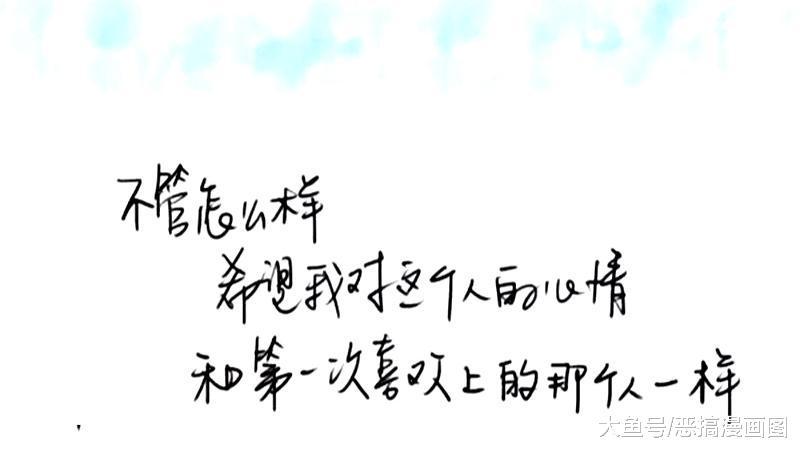 不管怎么样
希望我对这个人的心情
和第一次喜欢上的那个人一样
大鱼号/恶搞漫画图